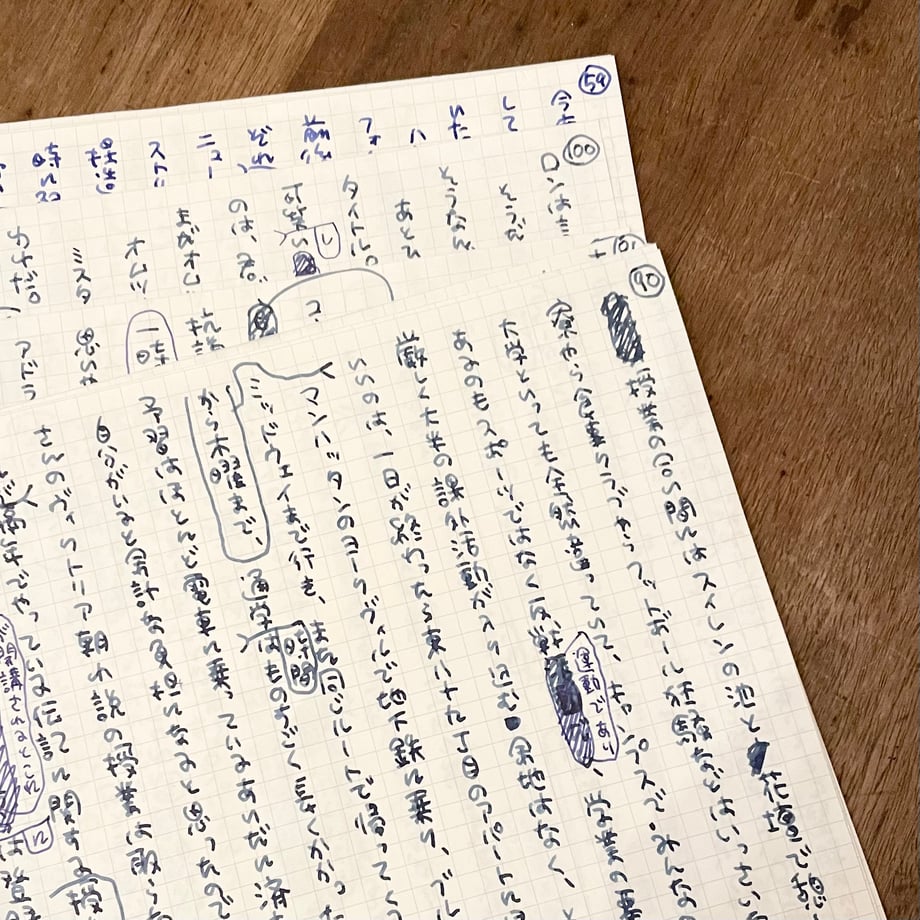 59
今
して
いた
ハ
フォ
前後
ぞれ、
ニュー
ストリ
放送
時に
100
ロンはミ
そうだ
そうなん
あとひ
タイトル。
可笑し
のは、君
まだオム
オムツ
ミスタ
わけだ。
101
?
抗議
一時
思いな
アドラ
90
授業のない間にはスイレンの池と花壇で憩
寮やら食事クラブやらフットボール狂騒などはいっさい
大学といっても全然違っていて、キャンパスで、みんなの
あるのもスポーツではなく反戦運動であり、学業の要
厳しく大半の課外活動が入り込む余地はなく、
いいのは、一日が終わったら東八十九丁目のアパートに
マンハッタンのヨークヴィルで地下鉄に乗り、ブル
ミッドウェイまで行き、また同じルートで帰ってく
から木曜まで、通学時間はものすごく長くかかった
予習はほとんど電車に乗っているあいだに済
自分がいると余計な負担になると思ったので
さんのヴィクトリア朝小説の授業は取らな
隔年でやっている伝記に関する授
が開講されるとこれに
は登録